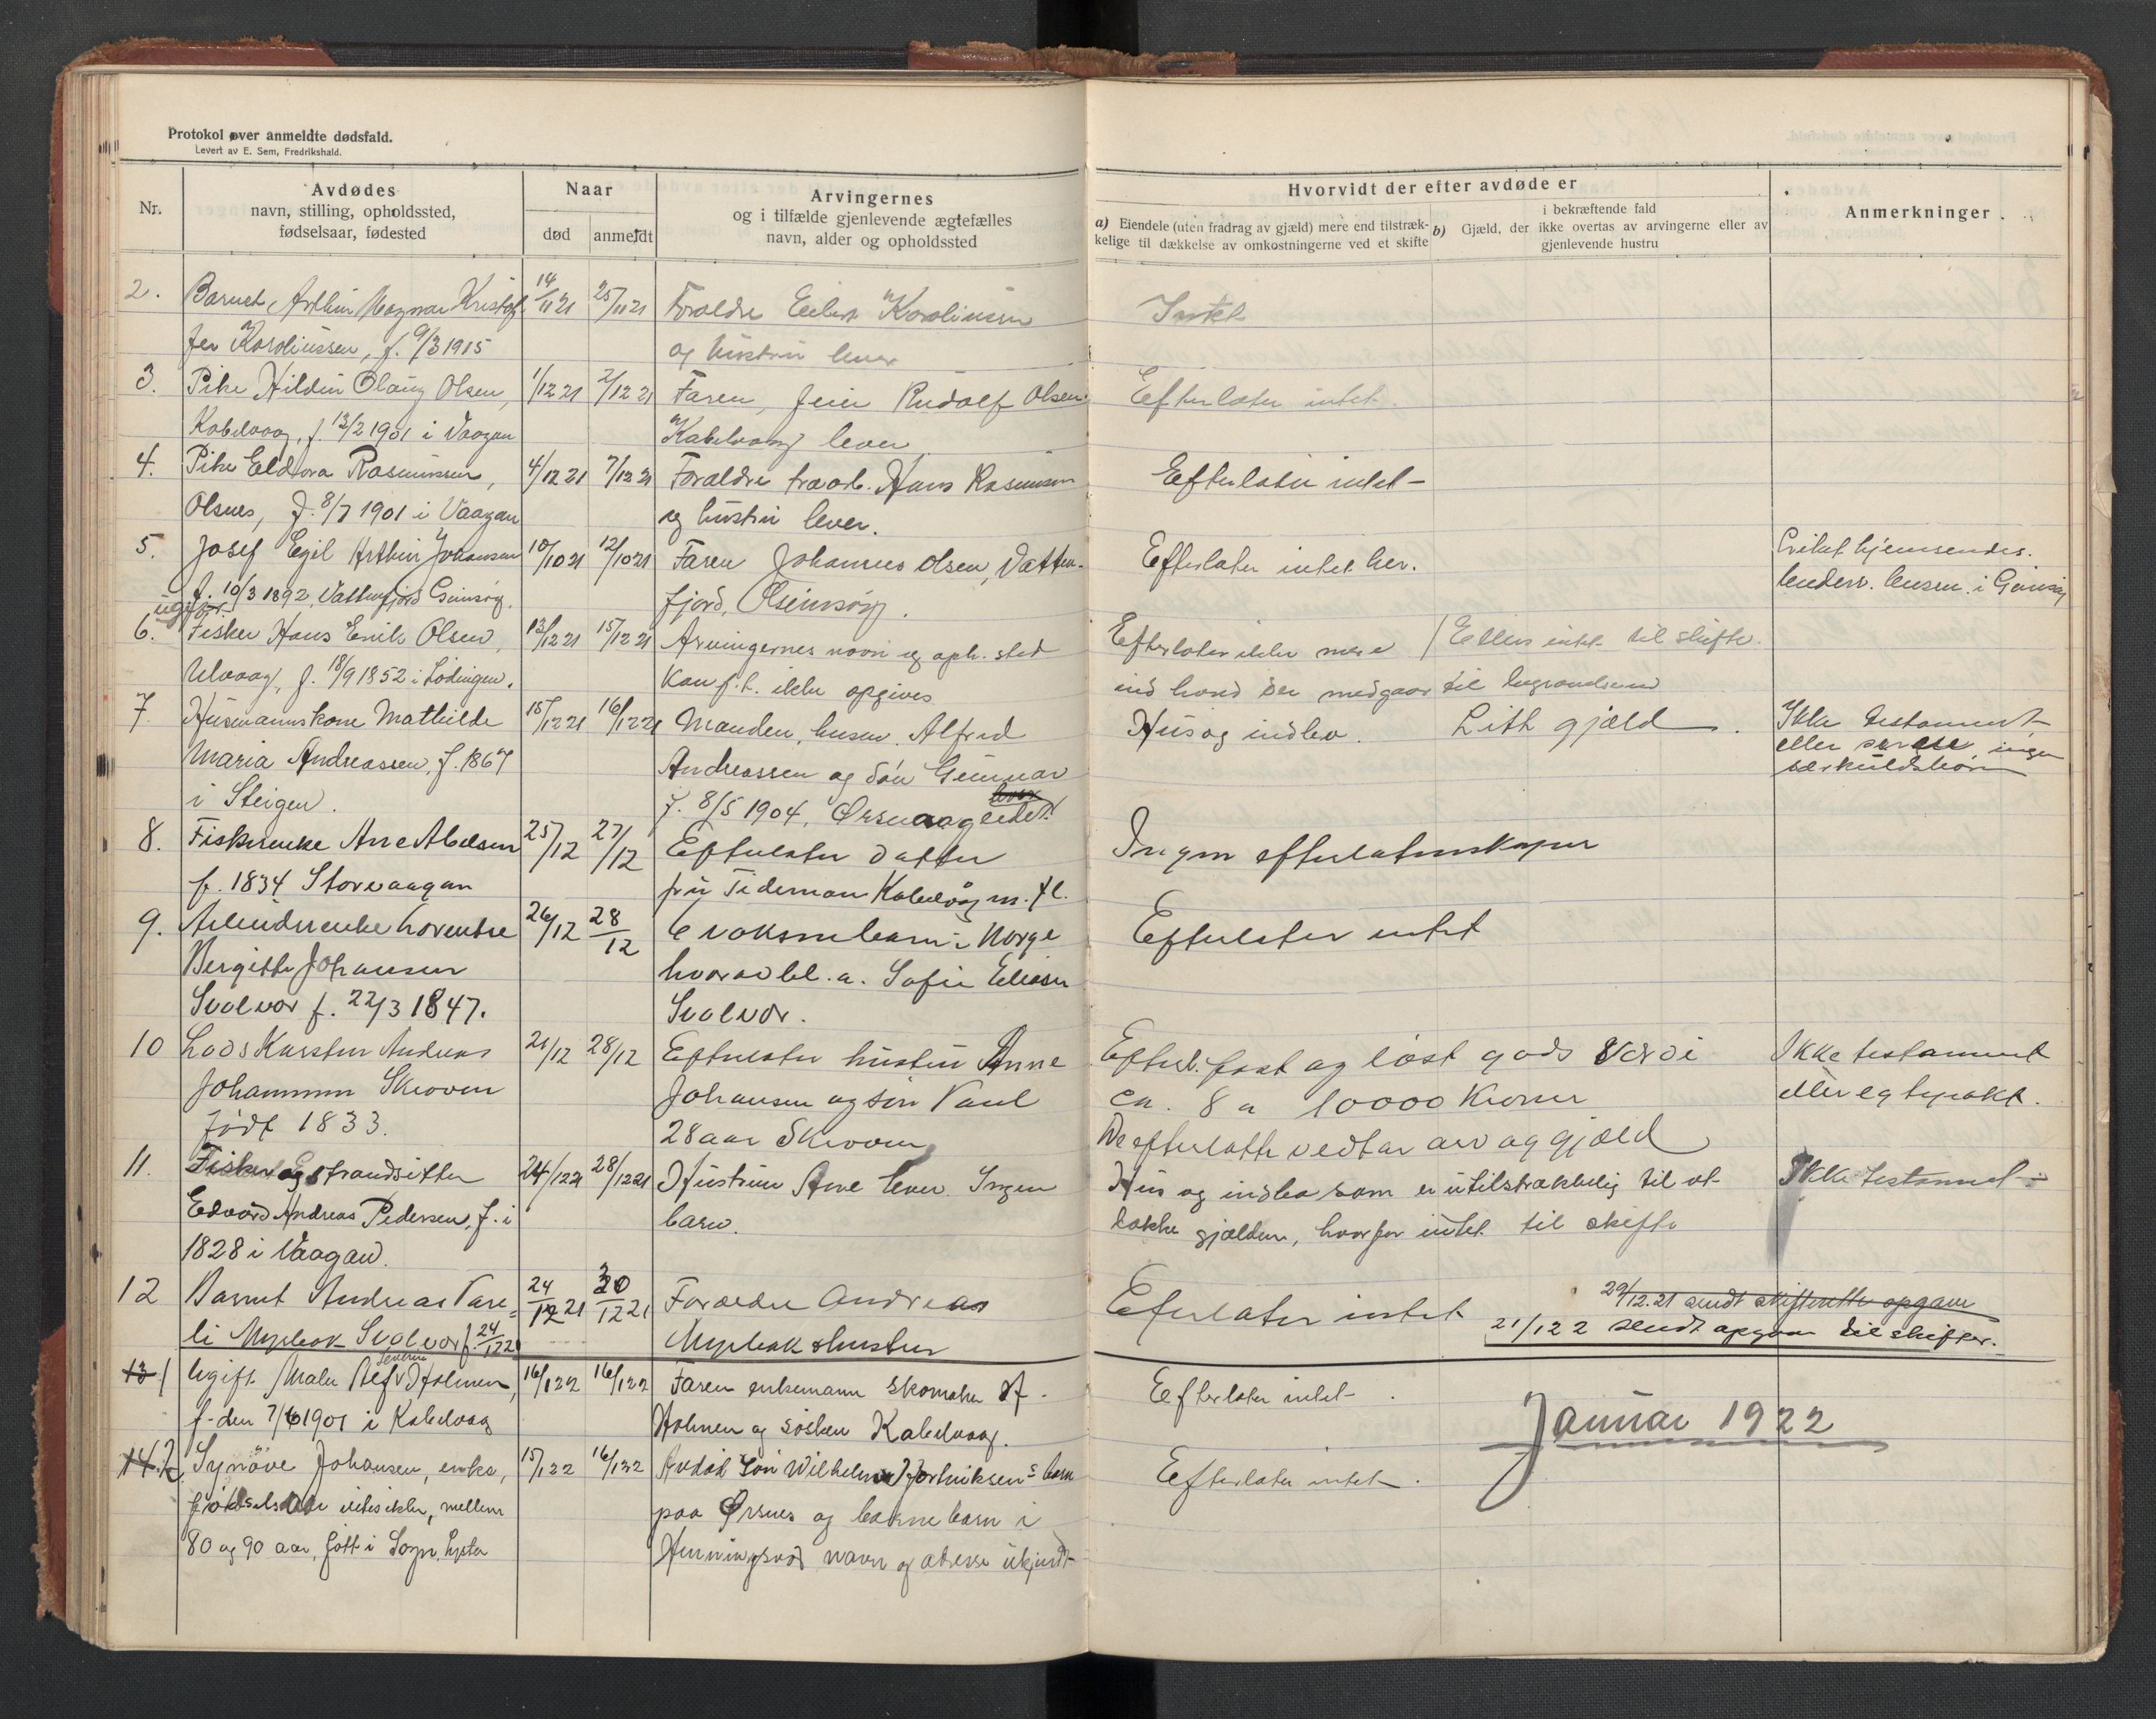 Protokol over anmeldte dødsfald.
Levert av E. Sem, Fredrikshald.
Nr.
Avdødes
navn, stilling, opholdssted,
fødselsaar, fødested
Naar
død
anmeldt
Arvingernes
og i tilfælde gjenlevende ægtefælles
navn, alder og opholdssted
Hvorvidt der efter avdøde er
a) Eiendele (uten fradrag av gjæld) mere end tilstræk-
kelige til dækkelse av omkostningerne ved et skifte
i bekræftende fald
b) Gjæld, der ikke overtas av arvingerne eller av
gjenlevende hustru
Anmerkninger
2. Barnet Arthur Magnar Kristof 14/11 21 25/11 21 Foraldre Eilert Karoliussen Intet
fer Karoliussen, f. 9/3 1915 og hustru lever
3. Pike Hildur Olaug Olsen, 1/12 21 2/12 21 Faren, feier Rudolf Olsen Efterlater intet.
Kabelvaag, f. 13/2 1901 i Vaagan Kabelvaag lever
4. Pike Eldora Rasmussen, 4/12 21 7/12 21 Foraldre traarb. Hans Rasmussen Efterlater intet –
Olsnes, f. 8/7 1901 i Vaagan og hustru lever.
5. Josef Egil Arthur Johansen 10/10 21 12/10 21 Faren Johannes Olsen, Vatten- Efterlater intet her. Liket hjemsendes.
f. 10/3 1892, Vattenfjord Gimsøy. fjord, Gimsøy. lendsm. i Gimsøy
ugift
6. Fisker Hans Enik Olsen, 13/12 21 15/12 21 Arvingernes navn og oph. sted Efterlater ikke mere / Ellers intet til skifte.
Ulvaag, f. 18/9 1852 i Lødingen. kan f.t. ikke opgives ind hvad der medgaar til begravelsen
7. Husmannskone Mathilde 15/12 21 16/12 21 Manden, husm. Alfred Hus og indbo. Litt gjæld. Ikke testament
Maria Andreassen, f. 1867 Andreassen og søn Gunnar eller ingen
i Steigen. f. 8/5 1904, Ørsvaageidet særkuldsbørn
8. Fiskerenke Ane Abelsen 25/12 27/12 Efterlater datter Ingen efterlatenskaper
f. 1834 Storvaagan fru Tideman Kabelvåg m. fl.
9. Arbeiderenke Lorentse 26/12 28/12 6 voksne barn i Norge Efterlater intet
Bergitte Johansen hvorav bl. a. Sofie Eliasen
Svolvær f. 22/3 1847. Svolvær.
10 Lods Karsten Andreas 21/12 28/12 Efterlater hustru Anne Efterl. fast og løst gods verdi Ikke testament
Johannesen Skroven Johansen og søn Paul ca. 8 a 10000 Kroner eller egtepakt.
født 1833. 28 aar Skroven De efterlatte vedtar arv og gjæld
11. Fisker og strandsitter 24/12 21 28/12 21 Hustrue Ane lever. Ingen Hus og indbo som er utilstrækkelig til at Ikke testament
Edvard Andreas Pedersen, f. i barn. dække gjælden, hvorfor intet til skifte
1828 i Vaagan.
12 Barnet Andreas Pare= 24/12 21 30/12 21 Foraeldre Andreas Efterlater intet 29/12.21 sendt skifterette opgave
li Myrbak Svolvær f. 24/12 20 Myrbak & hustru 21/1 22 sendt opgave til skifter.
Januar 1922
13 1 Ugift Maler Alf Severin Holmen, 16/1 22 16/1 22 Faren enkemann skomaker H. Efterlater intet.
f. den 7/6 1901 i Kabelvaag Holmen og søsken Kabelvaag.
14. 2 Synøve Johansen, enke, 15/1 22 16/1 22 Avdød søn Wilhelm Fredriksens barn Efterlater intet.
fødselsaar vites ikke, mellem paa Ørsnes og barnebarn i
80 og 90 aar, født i Sogn, Henningsvær navn og adresse ukjendt